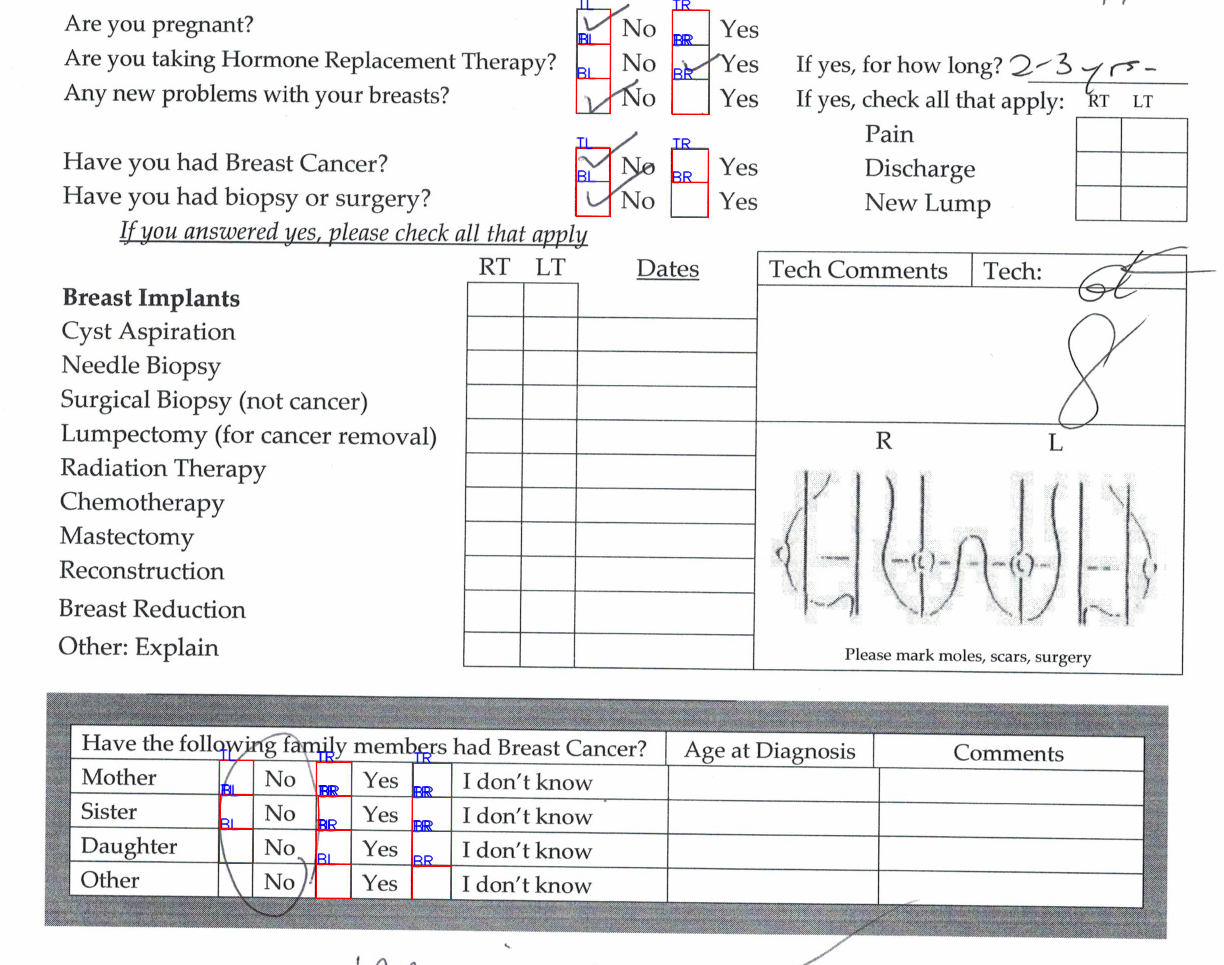 Are you pregnant? No Yes
Are you taking Hormone Replacement Therapy? No Yes If yes, for how long? 2-3 yrs-
Any new problems with your breasts? No Yes If yes, check all that apply: RT LT
Pain
Have you had Breast Cancer? No Yes Discharge
Have you had biopsy or surgery? No Yes New Lump
If you answered yes, please check all that apply
RT LT Dates Tech Comments Tech:
Breast Implants
Cyst Aspiration
Needle Biopsy
Surgical Biopsy (not cancer)
Lumpectomy (for cancer removal)
R L
Radiation Therapy
Chemotherapy
Mastectomy
Reconstruction
Breast Reduction
Other: Explain
Please mark moles, scars, surgery
Have the following family members had Breast Cancer? Age at Diagnosis Comments
Mother No Yes I don't know
Sister No Yes I don't know
Daughter No Yes I don't know
Other No Yes I don't know